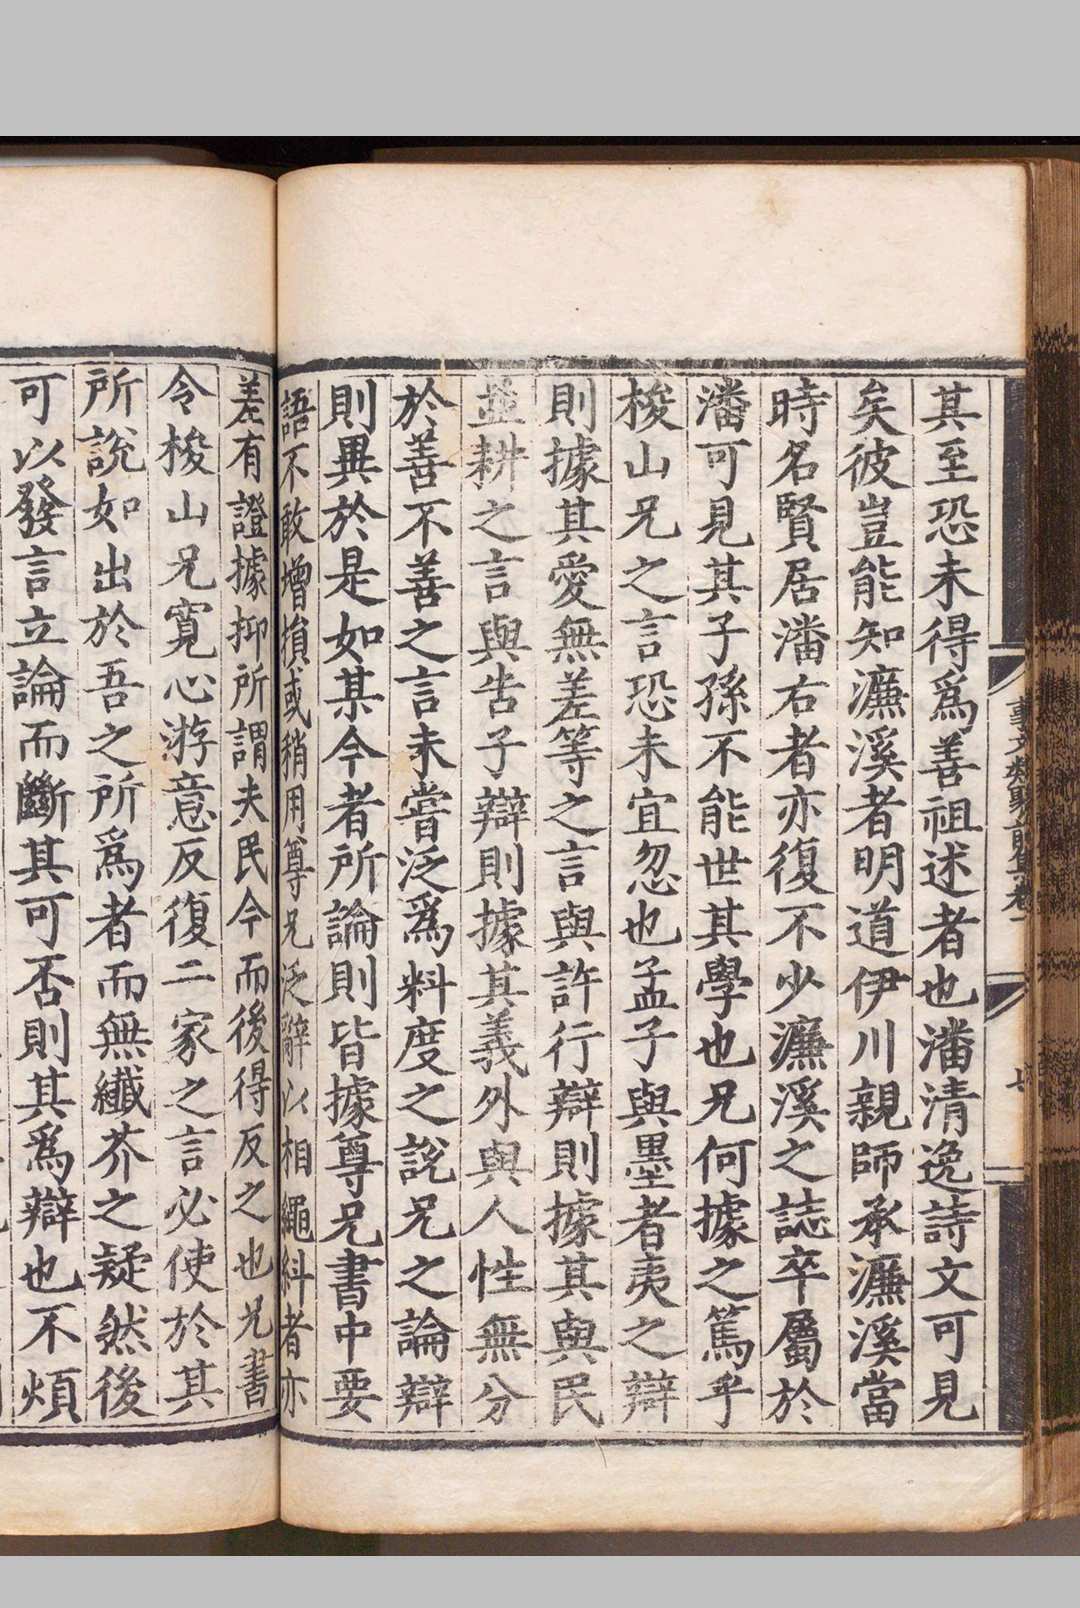 事文類聚前集卷一
七
其至恐未得爲善祖述者也潘清逸詩文可見
矣彼豈能知濂溪者明道伊川親師承濂溪當
時名賢居潘右者亦復不少濂溪之誌卒屬於
潘可見其子孫不能世其學也兄何據之篤乎
梭山兄之言恐未宜忽也孟子與墨者夷之辯
則據其愛無差等之言與許行辯則據其與民
並耕之言與告子辯則據其義外與人性無分
於善不善之言未嘗泛爲料度之說兄之論辯
則異於是如某今者所論則皆據尊兄書中要
語不敢增損或稍用尊兄泛辭以相繩糾者亦
差有證據抑所謂夫民今而後得反之也兄書
令梭山兄寬心游意反復二家之言必使於其
所說如出於吾之所爲者而無纖芥之疑然後
可以發言立論而斷其可否則其爲辯也不煩